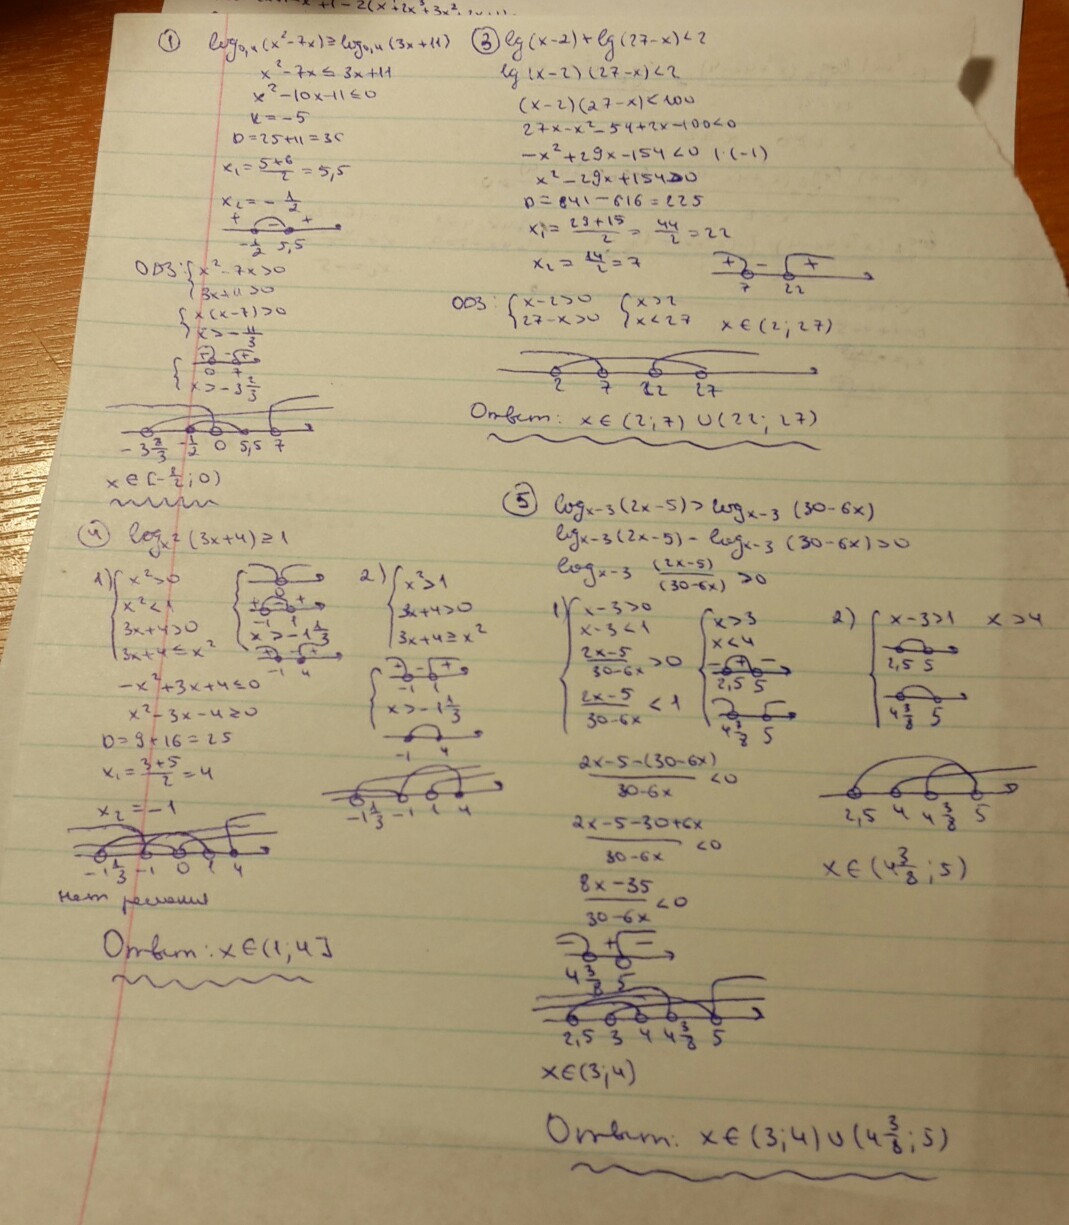 ① log₀,₄(x²-7x)≥log₀,₄(3x+11)
x²-7x≤3x+11
x²-10x-11≤0
k=-5
D=25+11=36
x₁=5+6/2=5,5
x₂=-1/2
+ - +
-1/2 5,5
ОДЗ: {x²-7x>0
3x+11>0
{x(x-7)>0
x>-11/3
{+ - +
0 7
x>-3 2/3
-3 2/3 -1/2 0 5,5 7
x∈[-1/2;0)
③ lg(x-2)+lg(27-x)<2
lg(x-2)(27-x)<2
(x-2)(27-x)<100
27x-x²-54+2x-100<0
-x²+29x-154<0 |·(-1)
x²-29x+154>0
D=841-616=225
x₁=29+15/2=44/2=22
x₂=14/2=7
+ - +
7 22
ОДЗ: {x-2>0 {x>2
27-x>0 x<27 x∈(2;27)
2 7 22 27
Ответ: x∈(2;7)∪(22;27)
④ logₓ²(3x+4)≥1
1) {x²>0
x²<1
3x+4>0
3x+4≤x²
{0
+ - +
-1 1
x>-1 1/3
+ - +
-1 4
-x²+3x+4≤0
x²-3x-4≥0
D=9+16=25
x₁=3+5/2=4
x₂=-1
-1 1/3 -1 0 1 4
нет решения
2) {x²>1
3x+4>0
3x+4≥x²
{+ - +
-1 1
x>-1 1/3
-1 4
-1 1/3 -1 1 4
Ответ: x∈(1;4]
⑤ logₓ₋₃(2x-5)>logₓ₋₃(30-6x)
logₓ₋₃(2x-5)-logₓ₋₃(30-6x)>0
logₓ₋₃ (2x-5)/(30-6x)>0
1) {x-3>0
x-3<1
2x-5/30-6x>0
2x-5/30-6x<1
{x>3
x<4
- + -
2,5 5
4 3/8 5
2x-5-(30-6x)/30-6x<0
2x-5-30+6x/30-6x<0
8x-35/30-6x<0
- + -
4 3/8 5
2,5 3 4 4 3/8 5
x∈(3;4)
2) {x-3>1 x>4
2,5 5
4 3/8 5
2,5 4 4 3/8 5
x∈(4 3/8;5)
Ответ: x∈(3;4)∪(4 3/8;5)